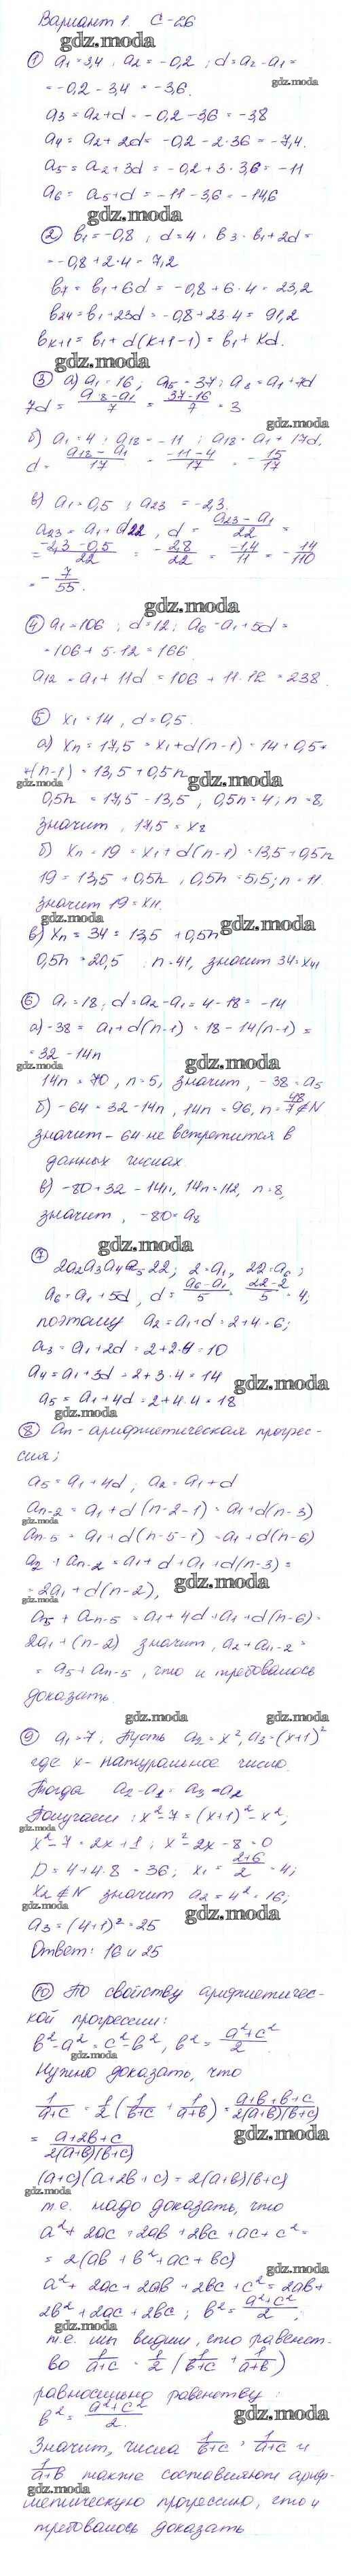 Вариант 1. С-26
gdz.moda
① a₁=3,4, a₂=-0,2; d=a₂-a₁=
=-0,2-3,4=-3,6.
gdz.moda
a₃=a₂+d=-0,2-3,6=-3,8
a₄=a₂+2d=-0,2-2·3,6=-7,4.
a₅=a₂+3d=-0,2+3·3,6=-11
a₆=a₅+d=-11-3,6=-14,6
gdz.moda
② b₁=-0,8; d=4, b₃=b₁+2d=
=-0,8+2·4=7,2
b₇=b₁+6d=-0,8+6·4=23,2
b₂₄=b₁+23d=-0,8+23·4=91,2
bₖ₊₁=b₁+d(k+1-1)=b₁+kd.
gdz.moda
③ а) a₁=16, a₈=37; a₈=a₁+7d
7d=(a₈-a₁)/7=(37-16)/7=3
б) a₁=4; a₁₈=-11; a₁₈=a₁+17d.
d=(a₁₈-a₁)/17=(-11-4)/17=-15/17
в) a₁=0,5; a₂₃=-2,3.
a₂₃=a₁+d22, d=(a₂₃-a₁)/22=
=(-2,3-0,5)/22=-2,8/22=-1,4/11=-14/110
=-7/55.
gdz.moda
④ a₁=106; d=12; a₆=a₁+5d=
=106+5·12=166
a₁₂=a₁+11d=106+11·12=238
⑤ x₁=14, d=0,5.
а) xₙ=17,5=x₁+d(n-1)=14+0,5·
·(n-1)=13,5+0,5n
gdz.moda gdz.moda
0,5n=17,5-13,5, 0,5n=4; n=8,
значит, 17,5=x₈
б) xₙ=19=x₁+d(n-1)=13,5+0,5n
19=13,5+0,5n, 0,5n=5,5; n=11.
значит 19=x₁₁.
gdz.moda gdz.moda
в) xₙ=34=13,5+0,5n
0,5n=20,5 n=41, значит 34=x₄₁
⑥ a₁=18; d=a₂-a₁=4-18=-14
а) -38=a₁+d(n-1)=18-14(n-1)=
=32-14n
gdz.moda gdz.moda
14n=70, n=5, значит, -38=a₅
б) -64=32-14n, 14n=96, n=48/7∉N
значит -64 не встретится в
данных числах
в) -80=32-14n, 14n=112, n=8,
значит, -80=a₈
gdz.moda
⑦ 2a₂a₃a₄a₅22; 2=a₁, 22=a₆;
a₆=a₁+5d, d=(a₆-a₁)/5=(22-2)/5=4;
поэтому a₂=a₁+d=2+4=6;
a₃=a₁+2d=2+2·4=10
a₄=a₁+3d=2+3·4=14
gdz.moda
a₅=a₁+4d=2+4·4=18
gdz.moda
⑧ aₙ-арифметическая прогрес-
сия;
a₅=a₁+4d; a₂=a₁+d
aₙ₋₂=a₁+d(n-2-1)=a₁+d(n-3)
gdz.moda
aₙ₋₅=a₁+d(n-5-1)=a₁+d(n-6)
a₂+aₙ₋₂=a₁+d+a₁+d(n-3)=
=2a₁+d(n-2),
gdz.moda gdz.moda
a₅+aₙ₋₅=a₁+4d+a₁+d(n-6)=
2a₁+(n-2) значит, a₂+aₙ₋₂=
=a₅+aₙ₋₅, что и требовалось
доказать.
gdz.moda gdz.moda
⑨ a₁=7, Пусть a₂=x², a₃=(x+1)²
где x- натуральное число.
Тогда a₂-a₁=a₃-a₂
Получаем: x²-7=(x+1)²-x²,
gdz.moda
x²-7=2x+1; x²-2x-8=0
D=4+4·8=36; x₁=(2+6)/2=4;
x₂∉N значит a₂=4²=16;
gdz.moda gdz.moda
a₃=(4+1)²=25
Ответ: 16 и 25
⑩ По свойству арифметичес-
кой прогрессии:
b²-a²=c²-b², b²=(a²+c²)/2
gdz.moda
Нужно доказать, что
1/(a+c)=1/2(1/(b+c)+1/(a+b))=(a+b+b+c)/(2(a+b)(b+c))
=(a+2b+c)/(2(a+b)(b+c))
gdz.moda
(a+c)(a+2b+c)=2(a+b)(b+c)
gdz.moda
т.е. надо доказать, что
a²+2ac+2ab+2bc+ac+c²=
=2(ab+b²+ac+bc)
gdz.moda
a²+2ac+2ab+2bc+c²=2ab+
2b²+2ac+2bc; b²=(a²+c²)/2;
gdz.moda
т.е. мы видим, что равенст-
во 1/(a+c)=1/2(1/(b+c)+1/(a+b))
равносильно равенству:
b²=(a²+c²)/2.
gdz.moda
Значит, числа 1/(b+c), 1/(a+c) и
1/(a+b) также составляют ариф-
gdz.moda
метическую прогрессию, что и
требовалось доказать